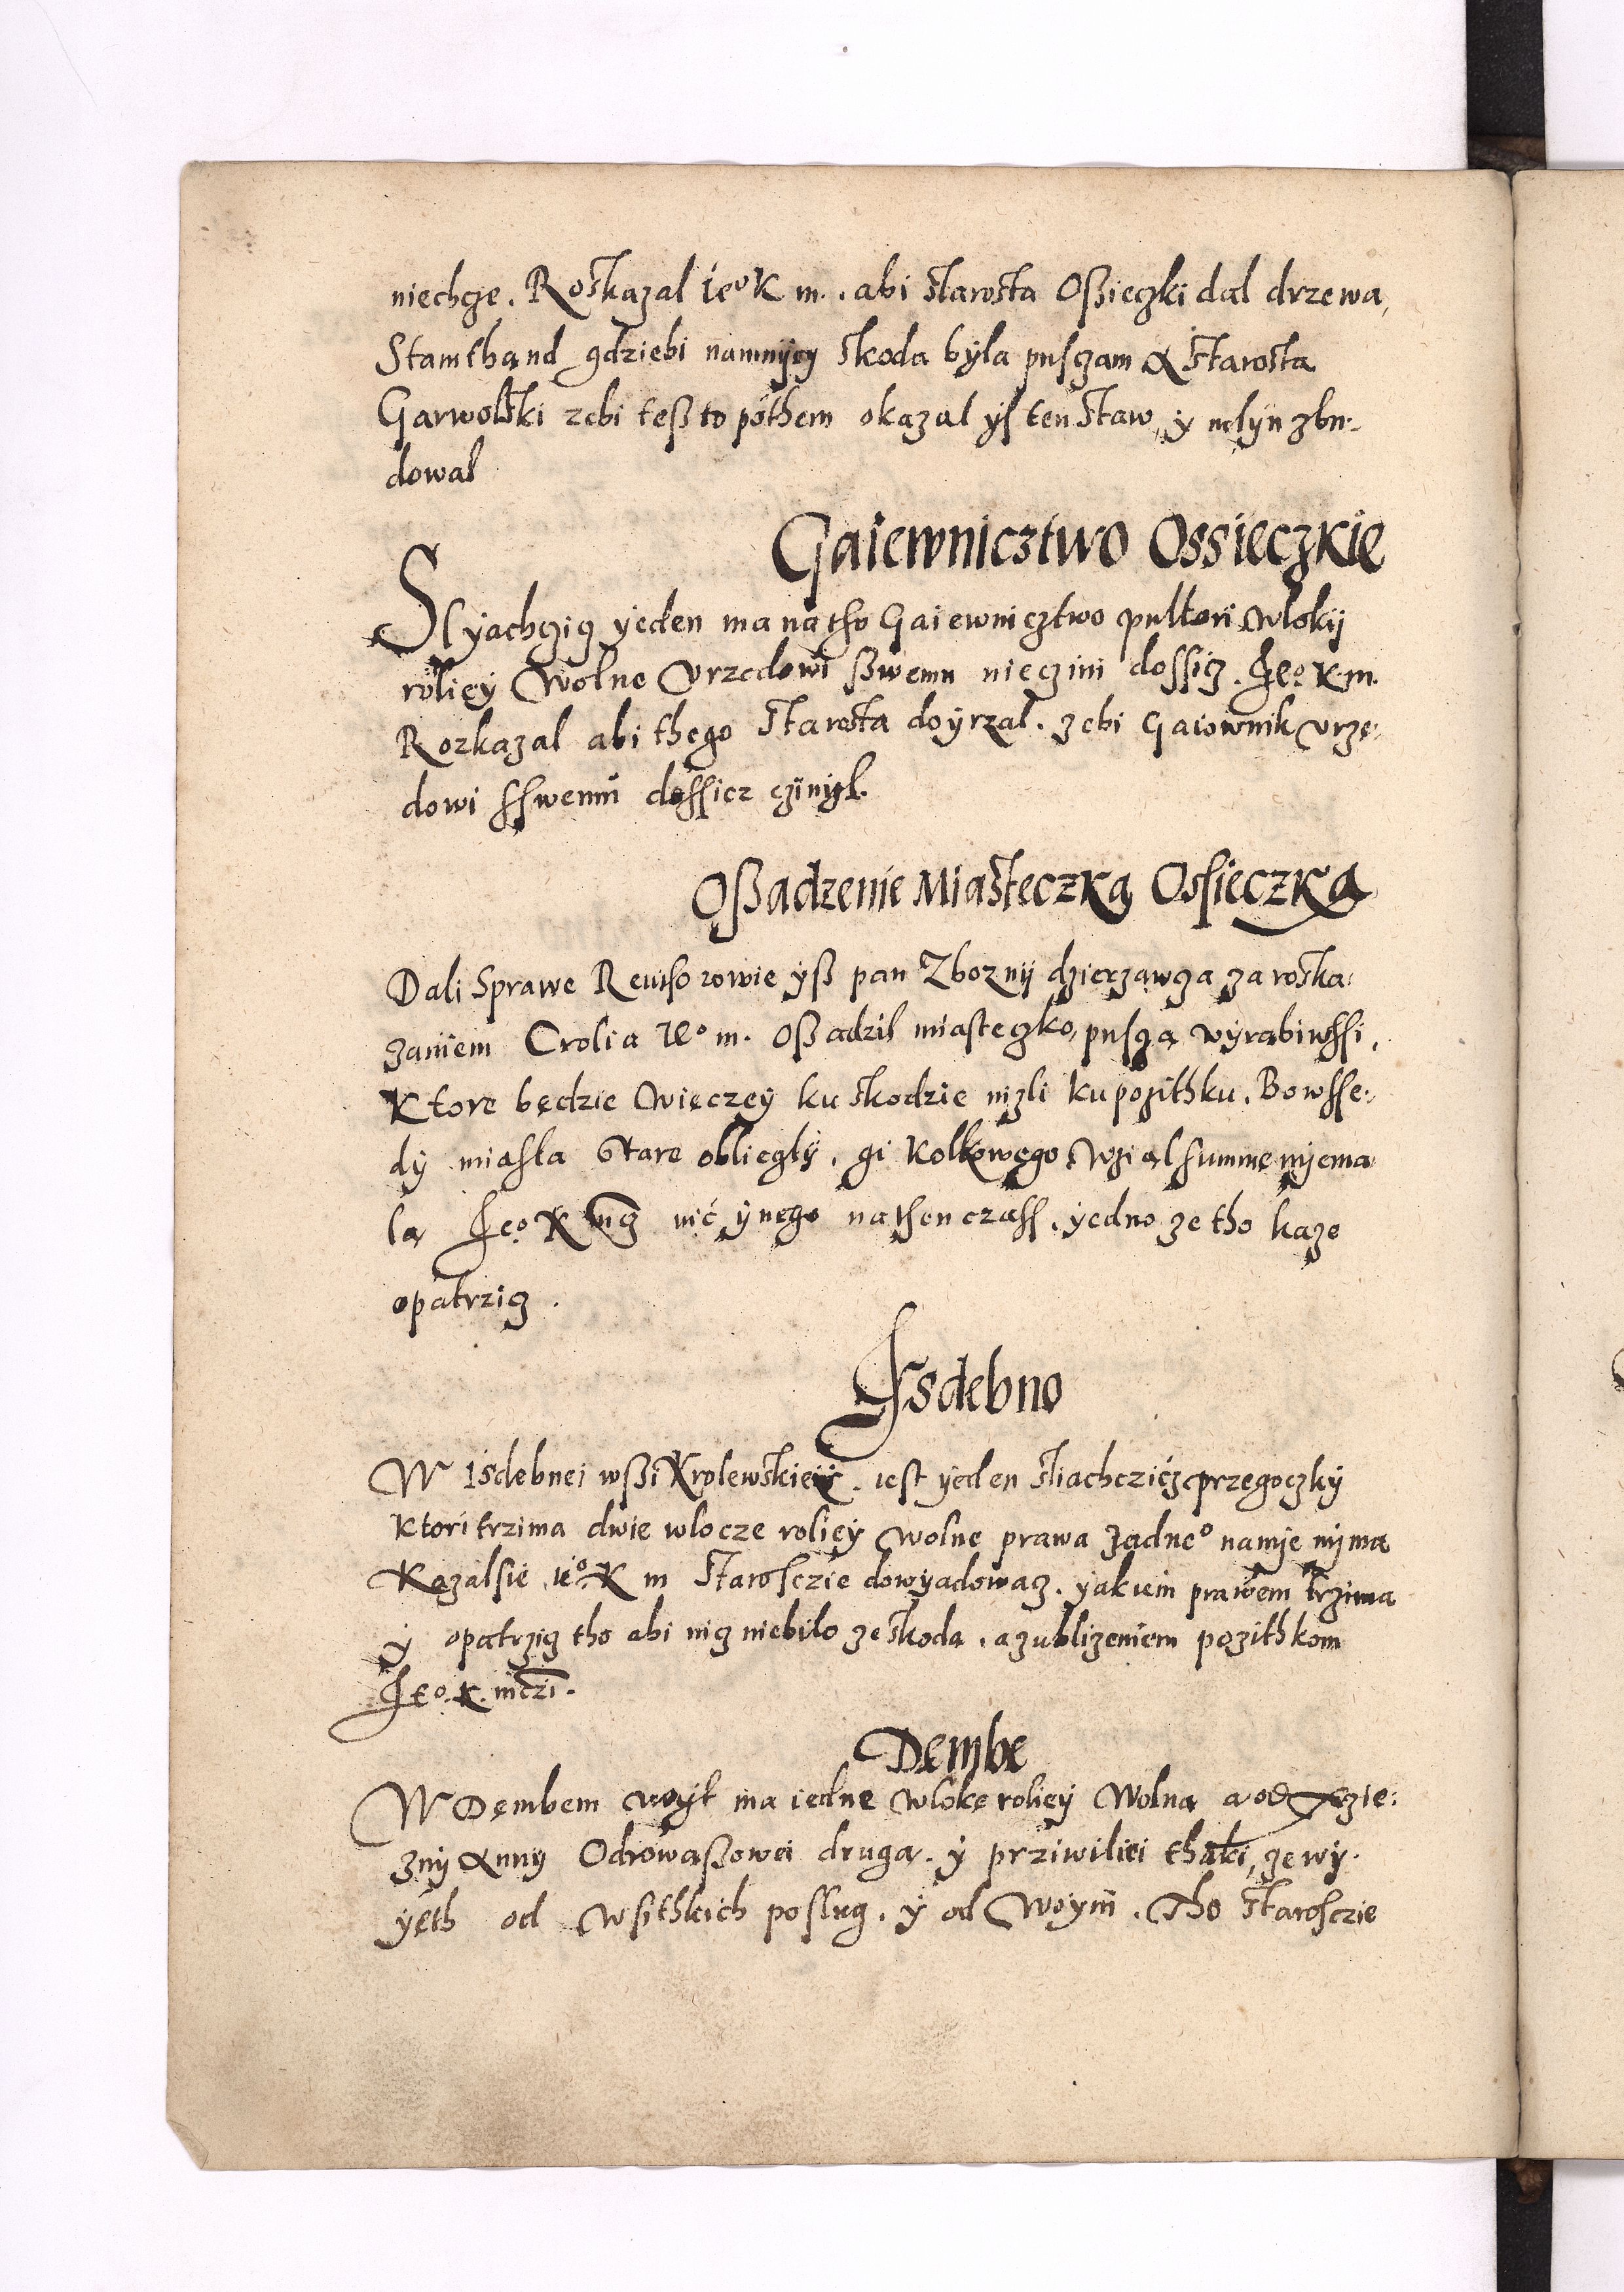 niechcze. Roskazal Ieº K m. abi starosta Oßieczki dal drzewa,
Stamthand gdziebi namnijey skoda byla puszam A starosta
Garwolski zebi teß to pothem okazal ys ten staw y mlyn zbu-
dowal
Gaiewnicztwo Ossieczkie
Slyachczicz yeden ma na tho Gaiewnicztwo pultori wlokij
roliey wolne Vrzedowi ßwemu nieczini dossicz. Ieº K m.
Rozkazal abi thego starosta doyrzal. zebi Gaiownik vrze-
dowi sswemu dossicz czinyl.
Oßadzenie Miasteczka Ossieczka
Dali Sprawe Reuisorowie yß pan Zboznij dzierzawcza za roska-
zaniem Crolia Ieº m. Oßadzil miasteczko, puscza wyrabiwssi,
Ktore będzie więczey ku skodzie nizli ku pozithku. Bo wsse-
dy miasta stare obliegly. gi Kolkowego wzial summe nijema-
la Ieº K mcz nic ynego na then czass. yedno ze tho kaze
opatrzicz.
Isdebno
W Isdebnei wßi Krolewskiey. iest yeden sliachczicz przegoczky
Ktori trzima dwie wlocze roliey wolne prawa zadneº namie nyma
Kazalsie ieº K m Starosczie dowyadowacz. yakiem prawem trzima
y opatrzicz tho abi nicz niebilo ze skoda. a z ublizeniem pozithkom
Ieº. K. mczi.
Dembe
W Dembem woyt ma iedne wloke roliey Wolna a od xezie-
zny Anny Odrowaßowei druga. y prziwiliei thaki, ze wy-
yeth od wsithkich poslug. y od Woyni. Tho starosczie